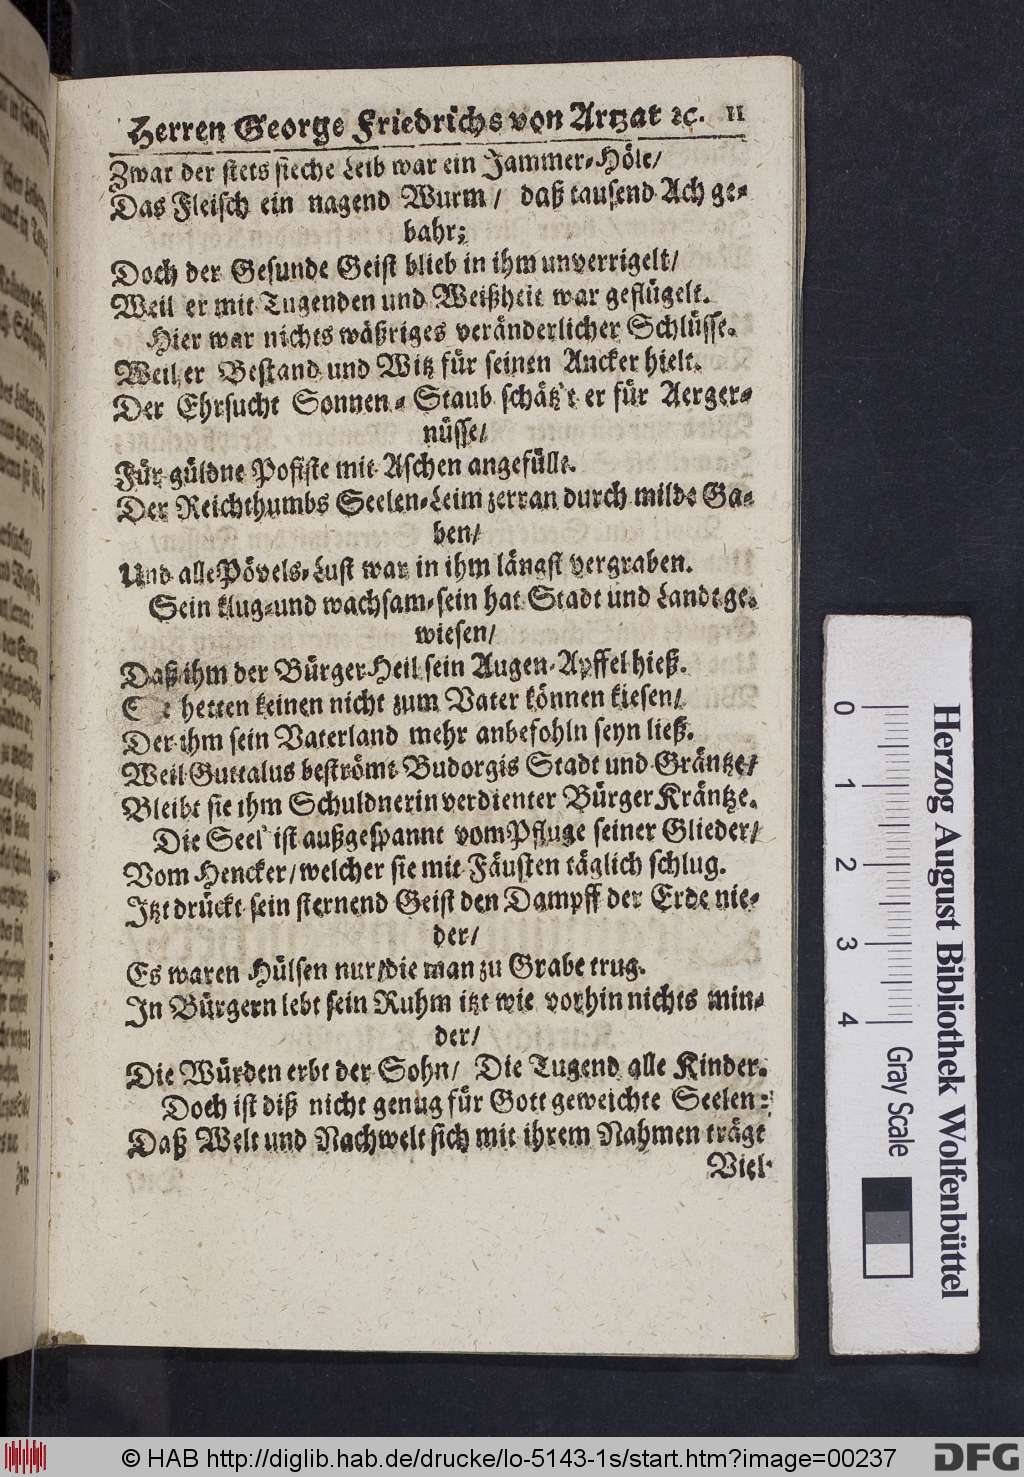 Herren George Friedrichs von Artzat ꝛc. 11
Zwar der stets sieche Leib war ein Jammer-Höle/
Das Fleisch ein nagend Wurm / daß tausend Ach ge-
bahr;
Doch der Gesunde Geist blieb in ihm unverrigelt/
Weil er mit Tugenden und Weißheit war geflügelt.
Hier war nichts wäßriges veränderlicher Schlüsse.
Weil er Bestand und Witz für seinen Ancker hielt.
Der Ehrsucht Sonnen-Staub schätz't er für Aerger-
nüsse/
Für güldne Pofiste mit Aschen angefüllt.
Der Reichthumbs Seelen-Leim zerran durch milde Ga-
ben/
Und alle Pövels-Lust war in ihm längst vergraben.
Sein klug-und wachsam-sein hat Stadt und Landt ge-
wiesen/
Daß ihm der Bürger Heil sein Augen-Apffel hieß.
hetten keinen nicht zum Vater können kiesen/
Der ihm sein Vaterland mehr anbefohln seyn ließ.
Weil Guttalus beströmt Budorgis Stadt und Gräntze/
Bleibt sie ihm Schuldnerin verdienter Bürger Kräntze.
Die Seel' ist außgespannt vom Pfluge seiner Glieder/
Vom Hencker/welcher sie mit Fäusten täglich schlug.
Itzt drückt sein sternend Geist den Dampff der Erde nie-
der/
Es waren Hülsen nur/die man zu Grabe trug.
In Bürgern lebt sein Ruhm itzt wie vorhin nichts min-
der/
Die Würden erbt der Sohn/ Die Tugend alle Kinder.
Doch ist diß nicht genug für Gott geweichte Seelen:
Daß Welt und Nachwelt sich mit ihrem Nahmen trägt
Viel
0 1 2 3 4
Herzog August Bibliothek Wolfenbüttel
Gray Scale
© HAB http://diglib.hab.de/drucke/lo-5143-1s/start.htm?image=00237
DFG